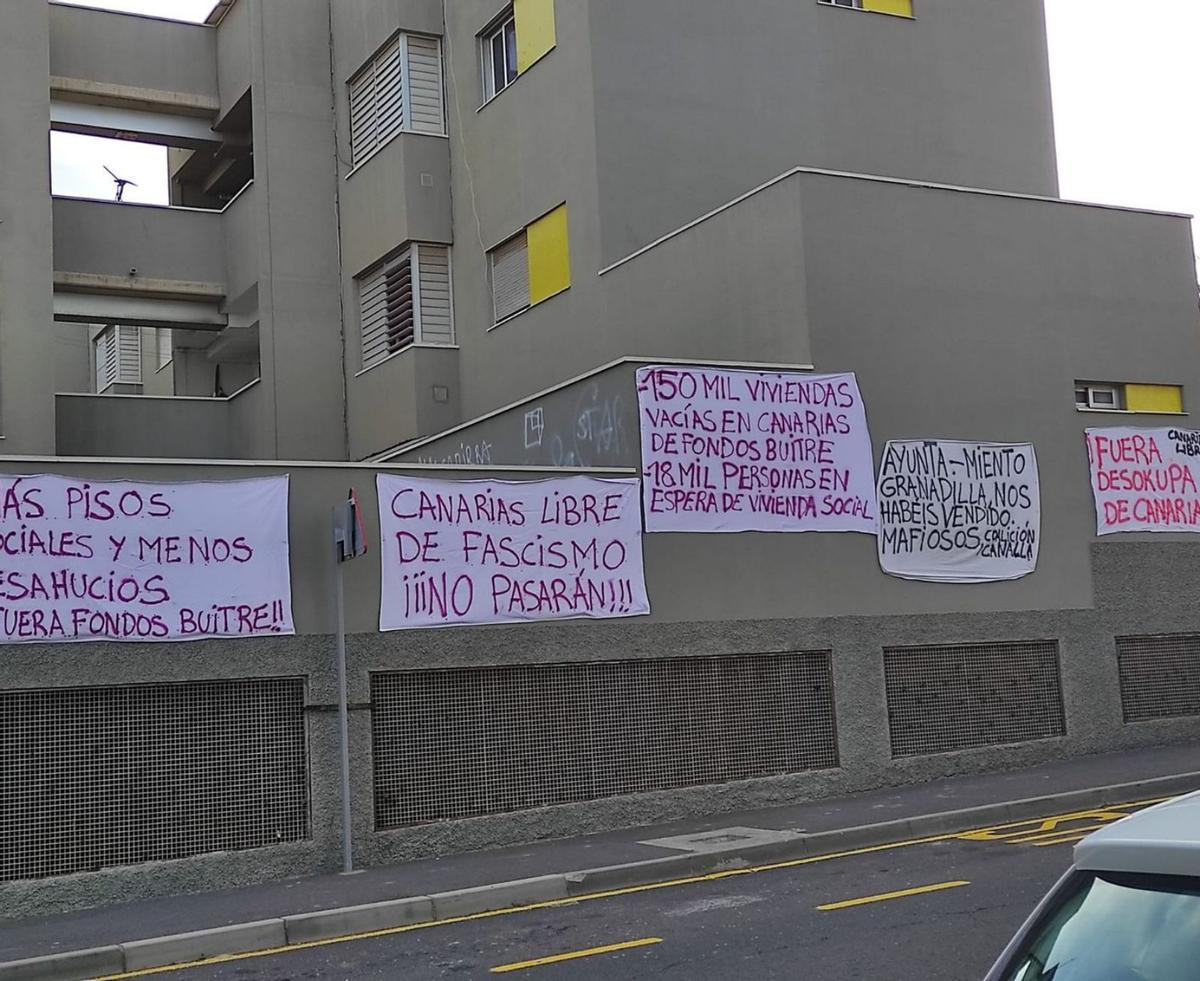 ÁS PISOS
OCIALES Y MENOS
ESAHUCIOS
FUERA FONDOS BUITRE!!
CANARIAS LIBRE
DE FASCISMO
¡¡¡NO PASARÁN!!!
-150 MIL VIVIENDAS
VACÍAS EN CANARIAS
DE FONDOS BUITRE
-18 MIL PERSONAS EN
ESPERA DE VIVIENDA SOCIAL
AYUNTA-MIENTO
GRANADILLA, NOS
HABÉIS VENDIDO.
MAFIOSOS, COALICIÓN
CANALLA
¡FUERA
DESOKUPA
DE CANARIA
CANARI
LIBR